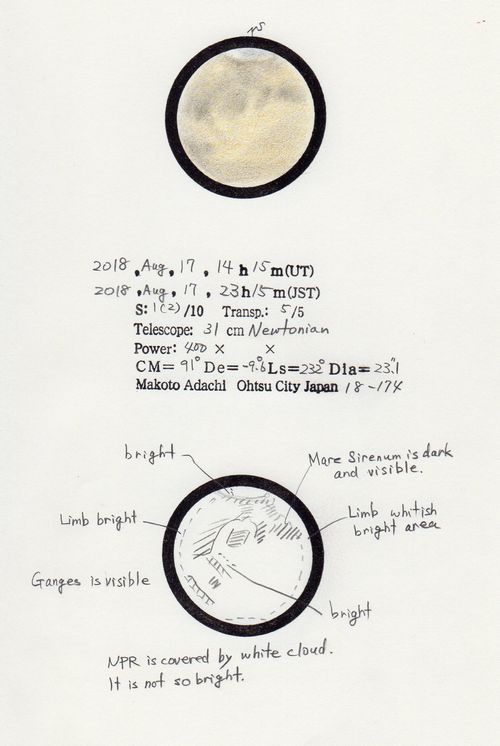 PS
2018, Aug, 17, 14h15m(UT)
2018, Aug, 17, 23h15m(JST)
S: 1(2)/10 Transp.: 5/5
Telescope: 31 cm Newtonian
Power: 400 × ×
CM= 91° De= -9.°6 Ls=232° Dia= 23."1
Makoto Adachi Ohtsu City Japan 18-174
bright
Mare Sirenum is dark
and visible.
Limb bright
Limb whitish
bright area
Ganges is visible
bright
NPR is covered by white cloud.
It is not so bright.